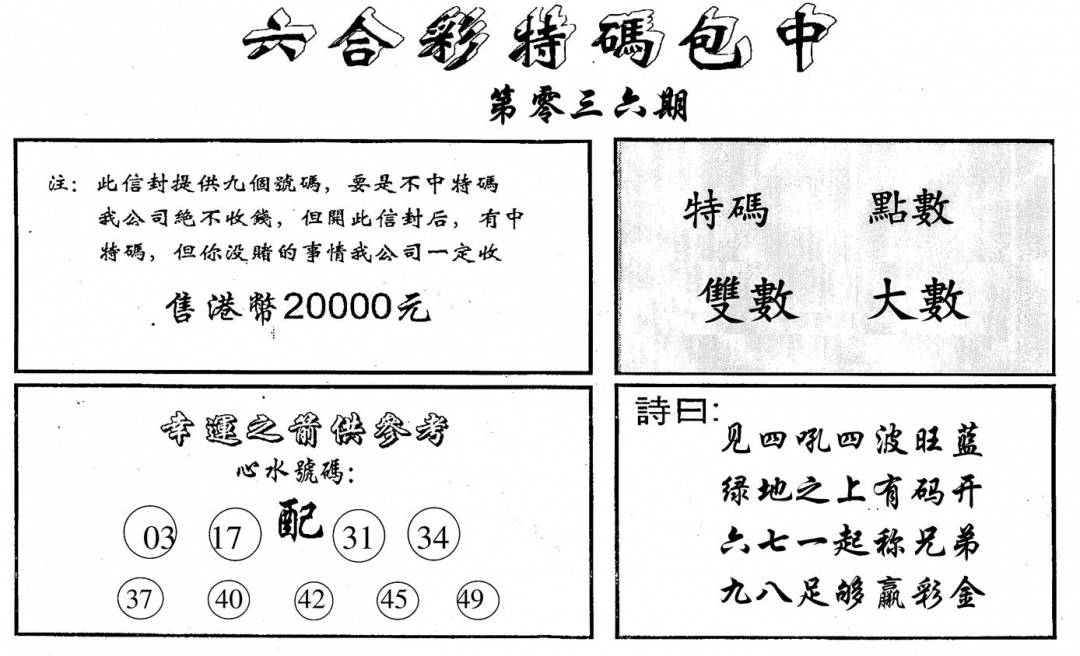 六合彩特碼包中
第零三六期
注：此信封提供九個號碼，要是不中特碼
我公司絕不收錢，但開此信封后，有中
特碼，但你没賭的事情我公司一定收
售港幣20000元
特碼 點數
雙數 大數
幸運之箭供參考
心水號碼：
03 17 配 31 34
37 40 42 45 49
詩曰：
见四吼四波旺蓝
绿地之上有码开
六七一起称兄弟
九八足够赢彩金